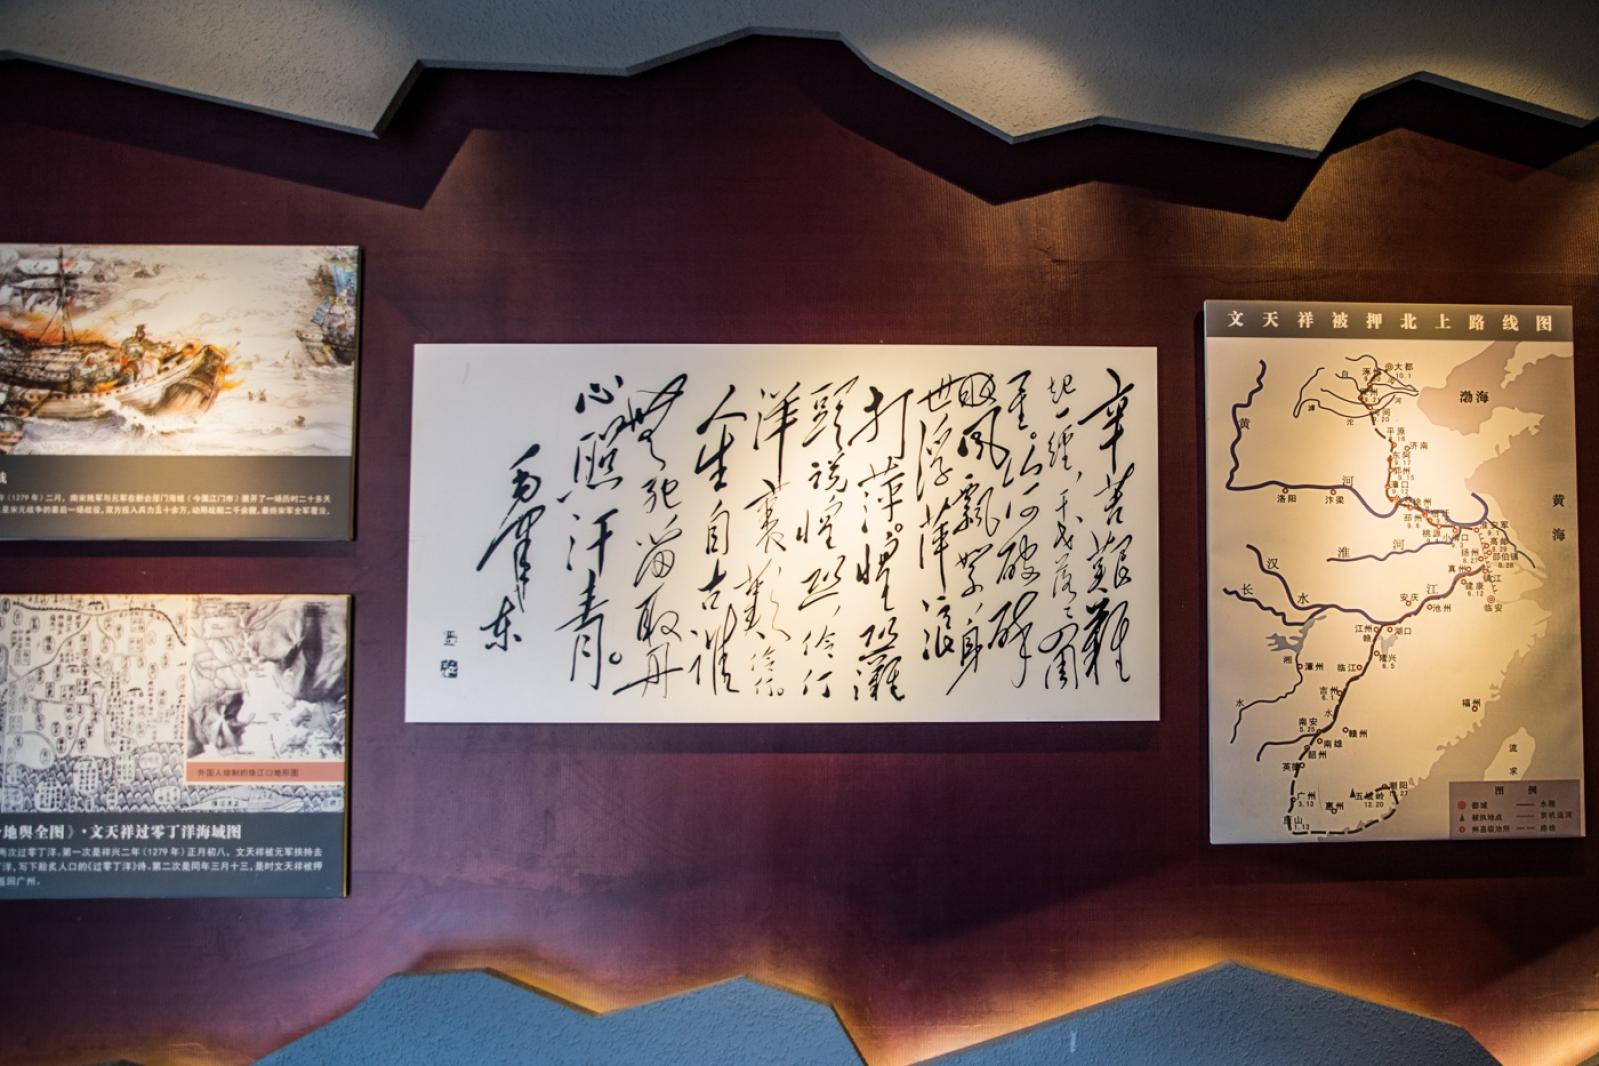 线
年(1279年)二月,南宋陆军与元军在新会崖门海域(今属江门市)展开了一场历时二十多天
是宋元战争的最后一场战役,双方投入兵力五十余万,动用战船二千余艘,最终宋军全军覆没,
外国人绘制的珠江口地形图
地舆全图》·文天祥过零丁洋海域图
两次过零丁洋。第一次是祥兴二年(1279年)正月初八,文天祥被元军挟持去
丁洋,写下脍炙人口的《过零丁洋》诗。第二次是同年三月十三,是时文天祥被押
返回广州。
辛苦艱難
起一經,干戈落落四周
星。山河破碎
風飄絮身
世浮浪
打萍。惶恐灘
頭說惶恐,伶仃
洋裏歎伶仃。
人生自古誰
無死留取丹
心照汗青。
毛澤東
文天祥被押北上路线图
大都
10.1
渤海
黄
河
平原
济南
东阿
9.17
9.15
洛阳
汴梁
徐州
邳州
桃源
淮安军
淮
河
高邮
扬州
邵伯镇
真州
镇江
建康
6.12
临安
黄
海
汉
水
长
江
安庆
池州
江州
湖口
隆兴
6.5
湘
水
潭州
临江
赣
水
吉州
6.1
南安
5.25
赣州
南雄
韶州
英德
福州
流
求
广州
3.13
惠州
五坡岭
12.20
潮阳
崖山
1.13
图例
都城
水程
被执地点
京杭运河
州县级治所
路线